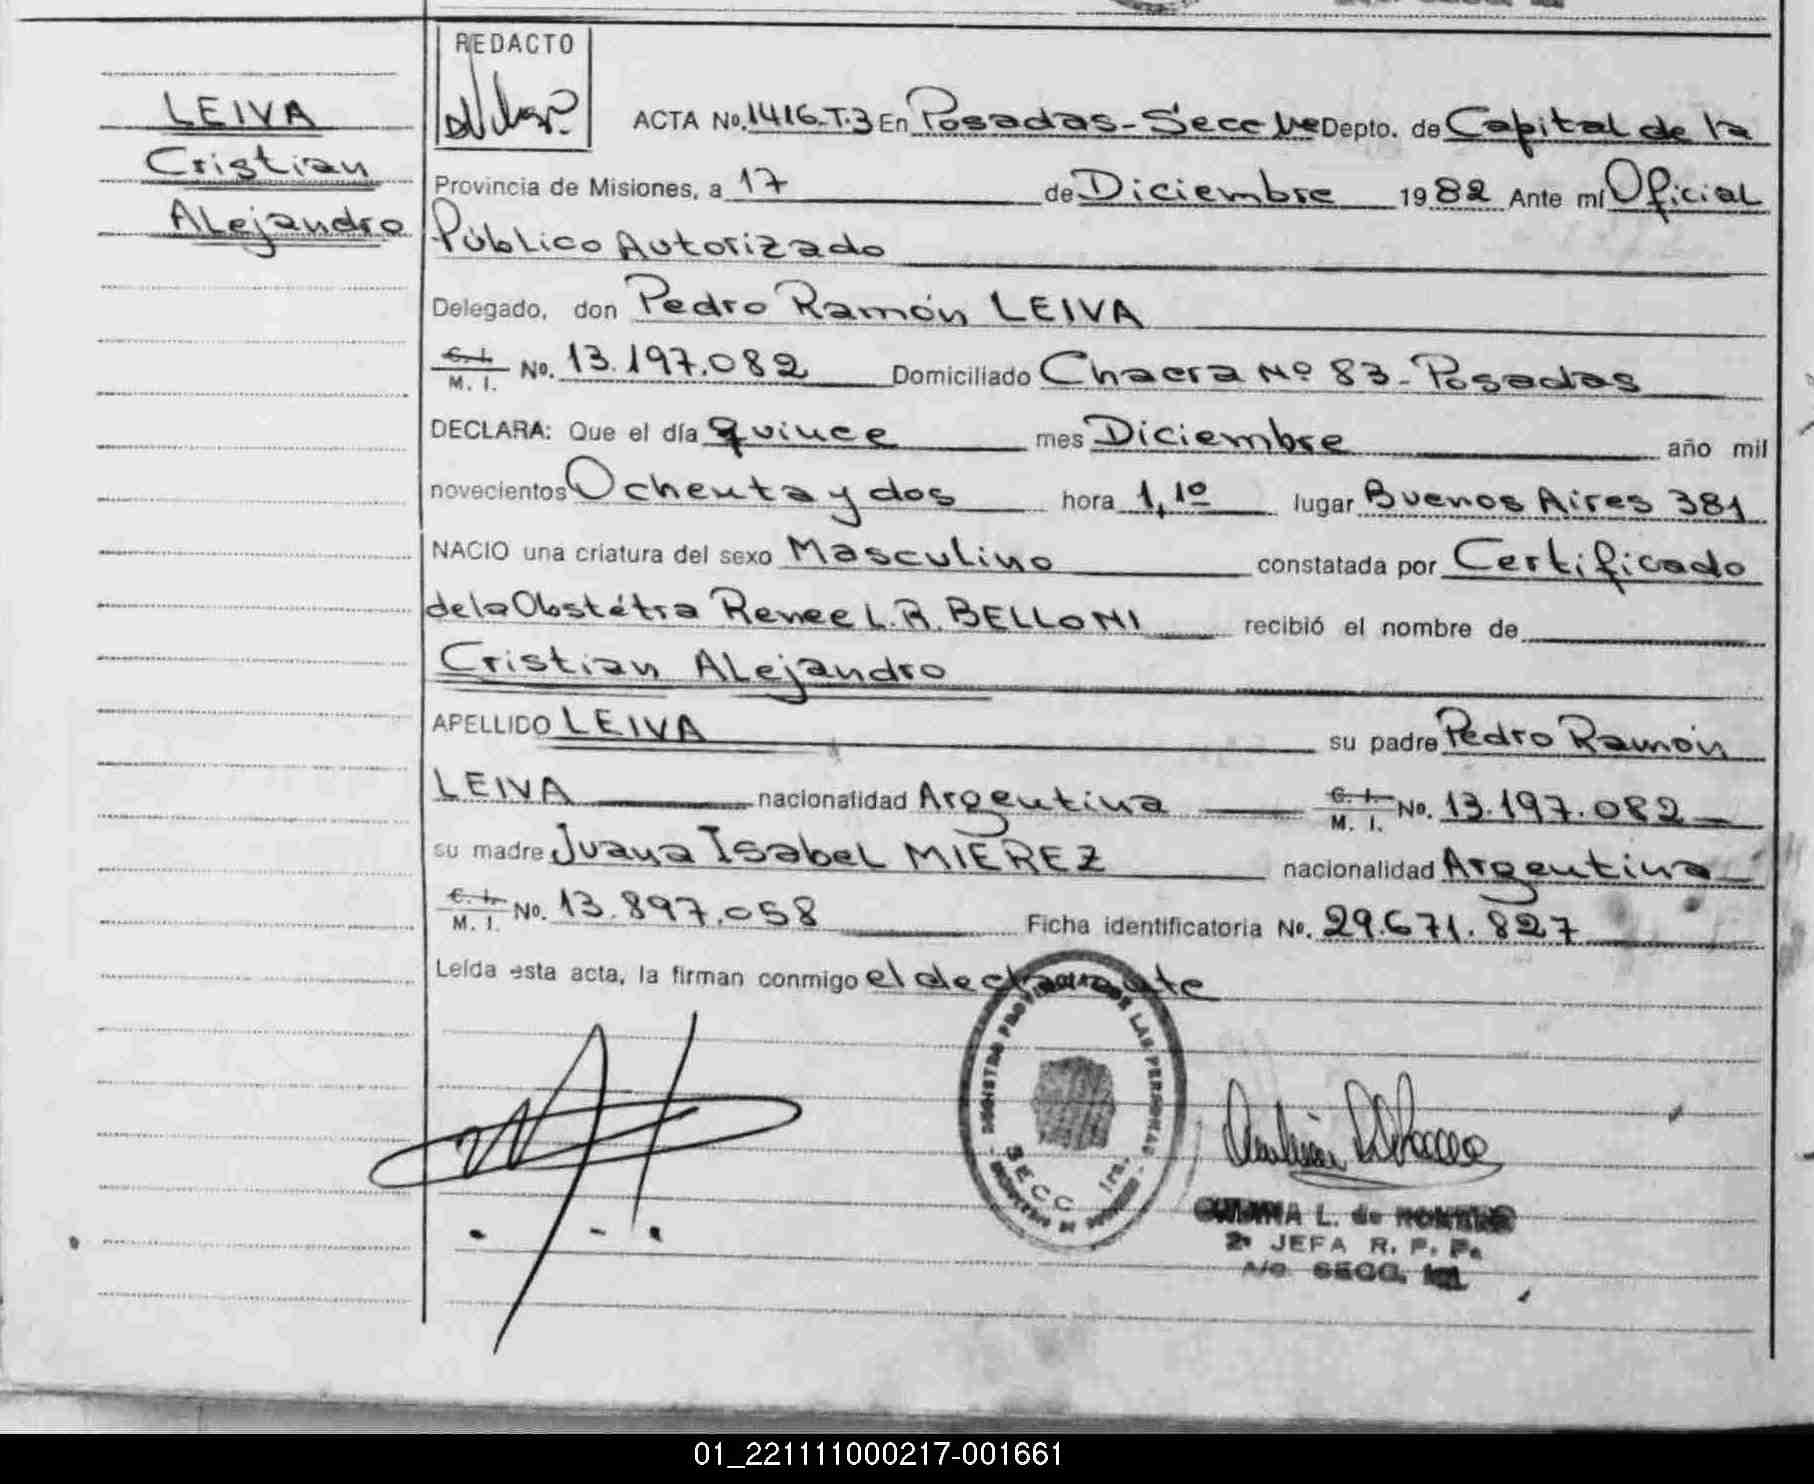 REDACTO
LEIVA
Cristian
Alejandro
ACTA No. 1416-T.3 En Posadas - Secc 1ra Depto. de Capital de la
Provincia de Misiones, a 17 de Diciembre 1982 Ante mí Oficial
Público Autorizado
Delegado, don Pedro Ramón LEIVA
C. I.
M. I. No. 13.197.082 Domiciliado Chacra Nº 83 - Posadas
DECLARA: Que el día quince mes Diciembre año mil
novecientos Ochenta y dos hora 1,10 lugar Buenos Aires 381
NACIO una criatura del sexo Masculino constatada por Certificado
de la Obstétra Renee L. R. BELLONI recibió el nombre de
Cristian Alejandro
APELLIDO LEIVA su padre Pedro Ramón
LEIVA nacionalidad Argentina C. I.
M. I. No. 13.197.082
su madre Juana Isabel MIEREZ nacionalidad Argentina
C. I.
M. I. No. 13.897.058 Ficha identificatoria No. 29.671.827
Leída esta acta, la firman conmigo el declarante
REGISTRO PROVINCIAL DE LAS PERSONAS
SECC 1ra.
L. de
2ª JEFA R. P. P.
A/C SECC.
01_221111000217-001661